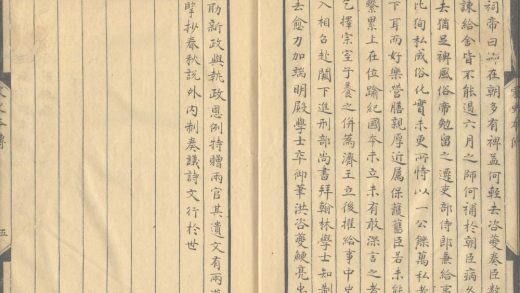 祠帝曰卿在朝多有裨益何輕去咨夔奏臣數
諫給舍皆不能過六月之師何補於朝臣病久
去猶足裨風俗帝勉留之遷吏部侍郎兼給事
比徇私成俗化實未更所恃以一公鑠萬私者
下耳而好樂營膳親厚近屬保護舊臣若未能
繫累上在位踰紀國本未立未有敢深言之者
乞擇宗室子養之併為濟王立後擢給事中史
入相召赴闕下進刑部尚書拜翰林學士知制
去愈力加端明殿學士卒御筆洪咨夔鯁亮忠
助新政與執政恩例特贈兩官其遺文有兩
擥抄春秋說外內制奏議詩文行於世
五